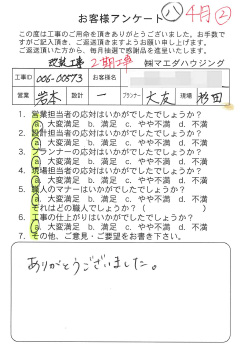 お客様アンケート
八 4月 ②
この度は工事のご用命を頂きありがとうございました。お手数で
すがご記入頂き、ご返送頂きますようお願い申し上げます。
ご返送頂いた方から、毎月抽選で感謝品を進呈いたします。
改装工事 2期工事 ㈱マエダハウジング
工事ID 006-00573 お客様名
営業 岩本 設計 一 プランナー 大友 現場 杉田
1. 営業担当者の応対はいかがでしたでしょうか?
a. 大変満足 b. 満足 c. やや不満 d. 不満
2. 設計担当者の応対はいかがでしたでしょうか?
a. 大変満足 b. 満足 c. やや不満 d. 不満
3. プランナーの応対はいかがでしたでしょうか?
a. 大変満足 b. 満足 c. やや不満 d. 不満
4. 現場担当者の応対はいかがでしたでしょうか?
a. 大変満足 b. 満足 c. やや不満 d. 不満
5. 職人のマナーはいかがでしたでしょうか?
a. 大変満足 b. 満足 c. やや不満 d. 不満
それはどの職人でしょうか?( )
6. 工事の仕上がりはいかがでしたでしょうか?
a. 大変満足 b. 満足 c. やや不満 d. 不満
7. その他、ご意見・ご要望をお書き下さい。
ありがとうございました。